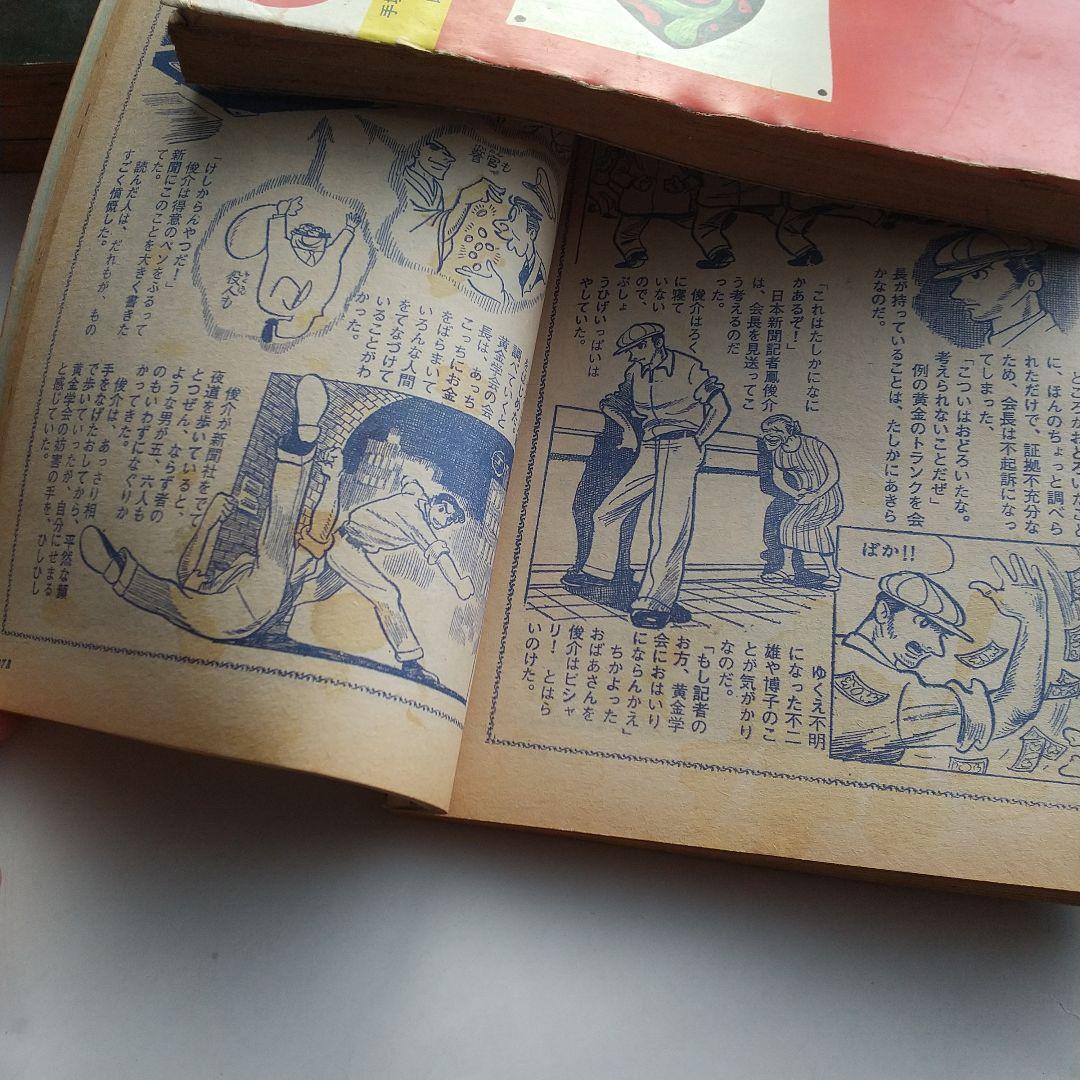 手塚
ところがおどろいたこと
に、ほんのちょっと調べら
れただけで、証拠不充分な
ため、会長は不起訴になっ
てしまった。
「こいつはおどろいたな。
考えられないことだぜ」
例の黄金のトランクを会
長が持っていることは、たしかにあきら
かなのだ。
「これはたしかになに
かあるぞ！」
日本新聞記者鳳俊介
は、会長を見送ってこ
う考えるのだ
った。
俊介はろく
に寝て
いない
ので、
ぶしょ
うひげいっぱいは
やしていた。
ばか!!
ゆくえ不明
になった不二
雄や博子のこ
とが気がかり
なのだ。
「もし記者の
お方、黄金学
会におはいり
にならんかえ」
ちかよった
おばあさんを
俊介はピシャ
リ！　とはら
いのけた。
調べていくと
黄金学会の会
長は、あっち
こっちにお金
をばらまいて
いろんな人間
をてなづけて
いることがわ
かった。
警官も
役人も
「けしからんやつだ！」
俊介は得意のペンをふるって
新聞にこのことを大きく書きた
てた。
読んだ人は、だれもが、もの
すごく憤慨した。
俊介が新聞社をでて
夜道を歩いていると、
とつぜん、ならず者の
ような男が五、六人も
のもいわずになぐりか
かってきた。
俊介は、あっさり相
手をなげたおしてから、平然な顔
で歩いていったが、自分にせまる
黄金学会の妨害の手を、ひしひし
と感じていた。